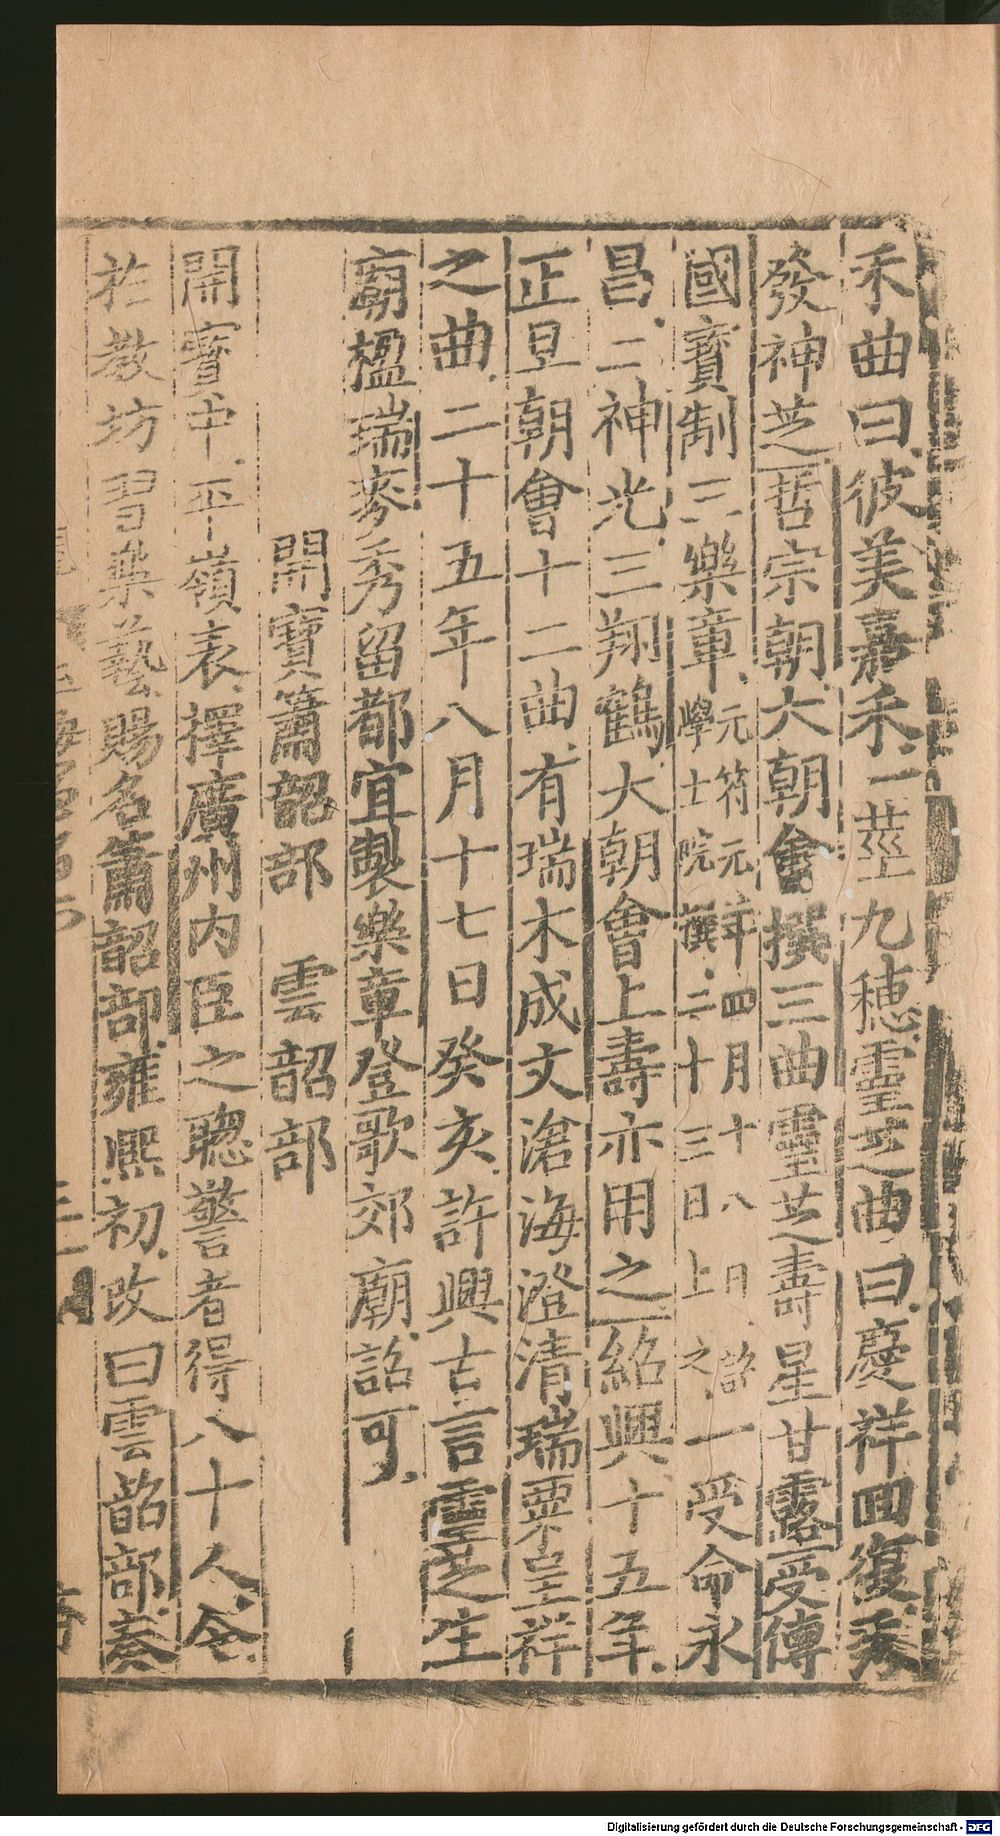 禾曲曰彼美嘉禾一莖九穗靈芝曲曰慶祥回復秀
發神芝哲宗朝大朝會撰三曲靈芝壽星甘露受傳
國寶制三樂章元符元年四月十八日詔
學士院撰二十三日上之一受命永
昌二神光三翔鶴大朝會上壽亦用之紹興十五年
正旦朝會十二曲有瑞木成文滄海澄清瑞粟呈祥
之曲二十五年八月十七日癸亥許興古言靈芝生
廟楹瑞麥秀留都宜製樂章登歌郊廟詔可
開寶簫韶部 雲韶部
開寶中平嶺表擇廣州內臣之聰警者得八十人令
於教坊習樂藝賜名簫韶部雍熙初改曰雲韶部奏
Digitalisierung gefördert durch die Deutsche Forschungsgemeinschaft - DFG